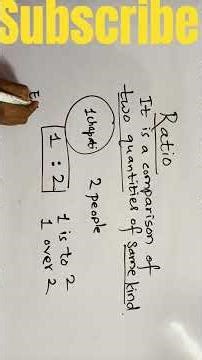 Subscribe
Ratio
It is a comparison of
two quantities of same kind.
1 chapati
2 people
1 : 2
1 is to 2
1 over 2
E